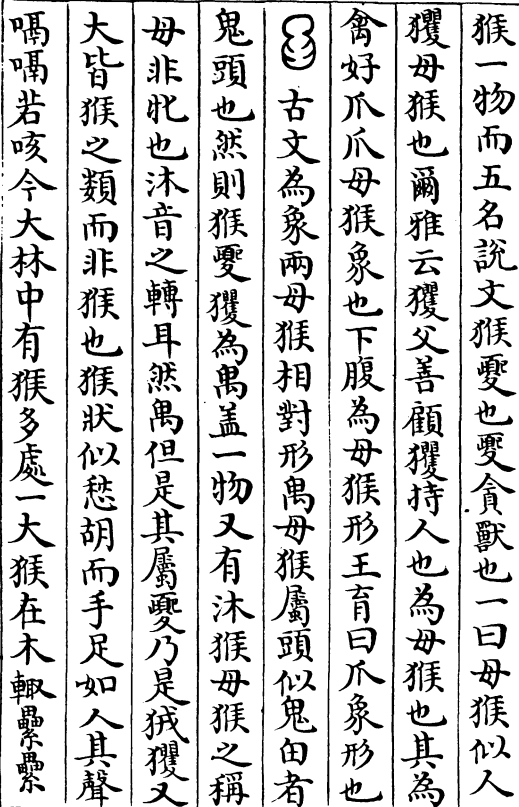 猴一物而五名說文猴夒也夒貪獸也一曰母猴似人
玃母猴也爾雅云玃父善顧玃持人也為母猴也其為
禽好爪爪母猴象也下腹為母猴形王育曰爪象形也
古文為象兩母猴相對形禺母猴屬頭似鬼甶者
鬼頭也然則猴夒玃為禺盖一物又有沐猴母猴之稱
母非牝也沐音之轉耳然禺但是其屬夒乃是狨玃又
大皆猴之類而非猴也猴狀似愁胡而手足如人其聲
嗝嗝若咳今大林中有猴多處一大猴在木輙纍纍